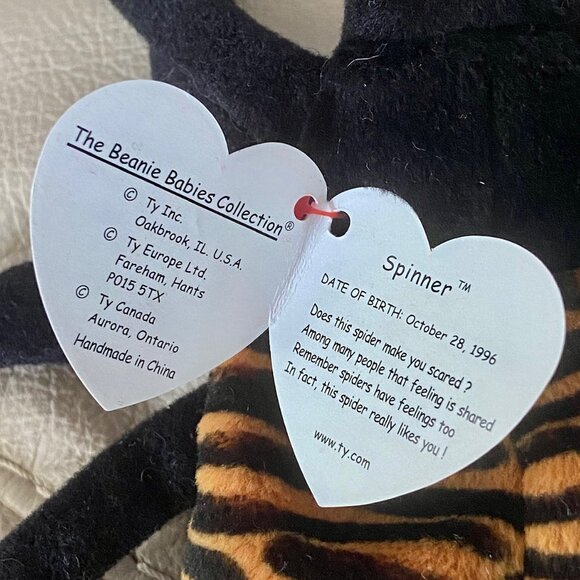 The Beanie Babies Collection®
© Ty Inc.
Oakbrook, IL. U.S.A.
© Ty Europe Ltd.
Fareham, Hants
PO15 5TX
© Ty Canada
Aurora, Ontario
Handmade in China
Spinner™
DATE OF BIRTH: October 28, 1996
Does this spider make you scared ?
Among many people that feeling is shared
Remember spiders have feelings too
In fact, this spider really likes you !
www.ty.com